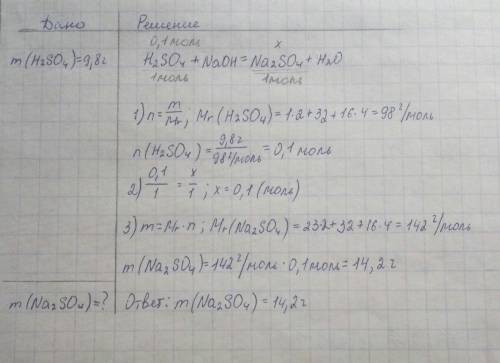 Дано
Решение
0,1 моль x
m(H₂SO₄)=9,8г
H₂SO₄ + NaOH = Na₂SO₄ + H₂O
1моль 1моль
1) n = m/Mr ; Mr(H₂SO₄) = 1·2+32+16·4 = 98 г/моль
n(H₂SO₄) = 9,8г/98 г/моль = 0,1 моль
2) 0,1/1 = x/1 ; x = 0,1 (моль)
3) m = Mr·n ; Mr(Na₂SO₄) = 23·2+32+16·4 = 142 г/моль
m(Na₂SO₄) = 142 г/моль · 0,1 моль = 14,2 г
m(Na₂SO₄)=?
Ответ: m(Na₂SO₄) = 14,2г